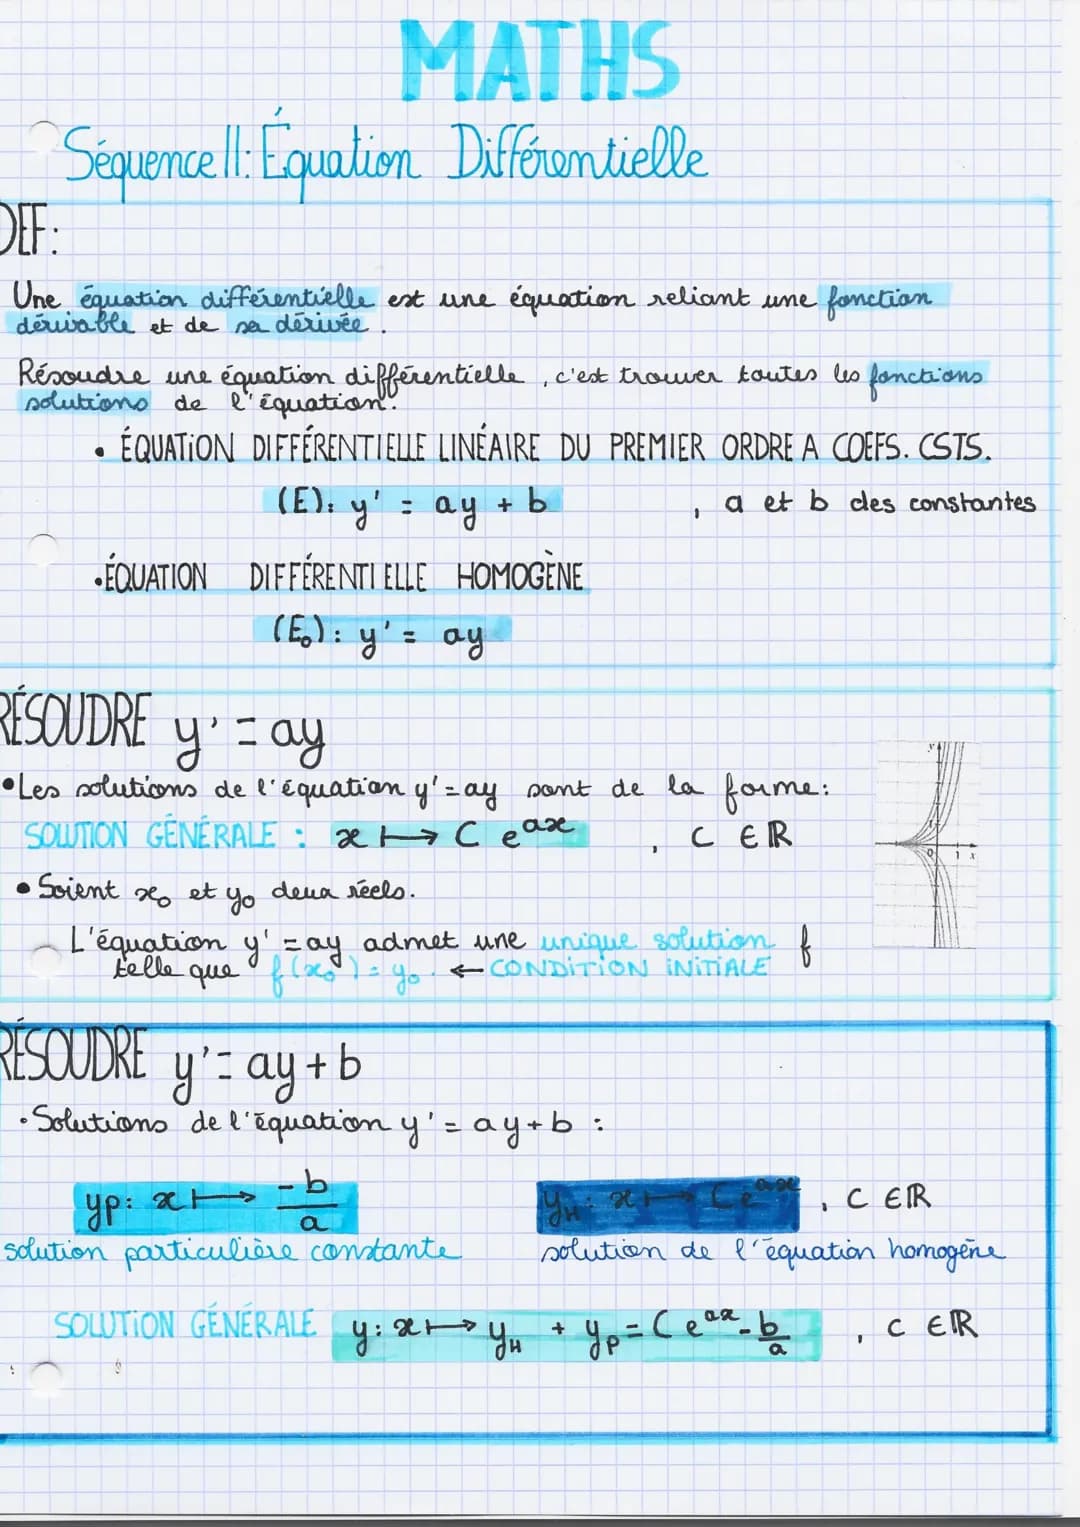 MATHS
Séquence 11: Équation Différentielle
DEF:
Une équation différentielle est une équation reliant une fonction
dérivable et de sa dérivée.
Résoudre une équation différentielle, c'est trouver toutes les fonctions
solutions de l'équation.
• ÉQUATION DIFFÉRENTIELLE LINÉAIRE DU PREMIER ORDRE A COEFS. CSTS.
(E): y' = ay + b , a et b des constantes
• ÉQUATION DIFFÉRENTIELLE HOMOGÈNE
(E₀): y' = ay
RÉSOUDRE y' = ay
• Les solutions de l'équation y' = ay sont de la forme:
SOLUTION GÉNÉRALE : x ↦ C e^{ax} , C ∈ ℝ
y
1
0 1 x
• Soient x₀ et y₀ deux réels.
L'équation y' = ay admet une unique solution f
telle que f(x₀) = y₀. ← CONDITION INITIALE
RÉSOUDRE y' = ay + b
• Solutions de l'équation y' = ay + b :
yp: x ↦ -b/a
y_H: x ↦ C e^{ax} , C ∈ ℝ
solution particulière constante
solution de l'équation homogène
SOLUTION GÉNÉRALE y: x ↦ y_H + y_p = C e^{ax} - b/a , C ∈ ℝ